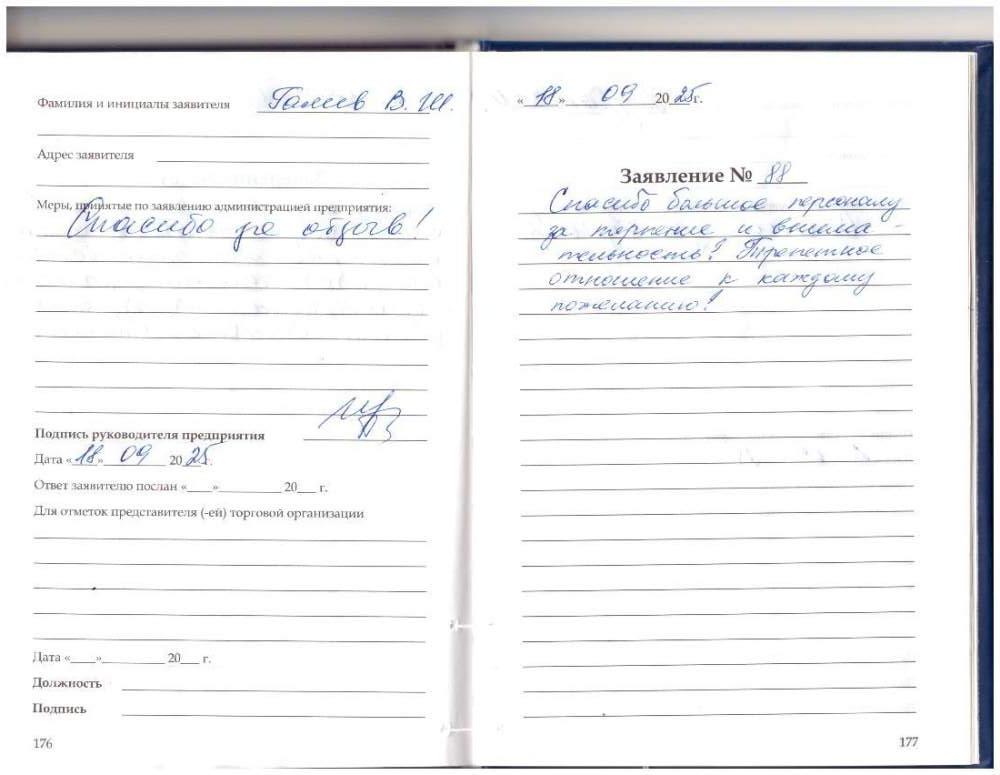 Фамилия и инициалы заявителя Галиев В. Ш.
Адрес заявителя
Меры, принятые по заявлению администрацией предприятия:
Спасибо за отзыв!
Подпись руководителя предприятия
Дата «18» 09 2025г.
Ответ заявителю послан «___»__________ 20___ г.
Для отметок представителя (-ей) торговой организации
Дата «___»__________ 20___ г.
Должность
Подпись
176
«18» 09 2025г.
Заявление № 88
Спасибо большое персоналу
за терпение и внима-
тельность! Трепетное
отношение к каждому
пожеланию!
177